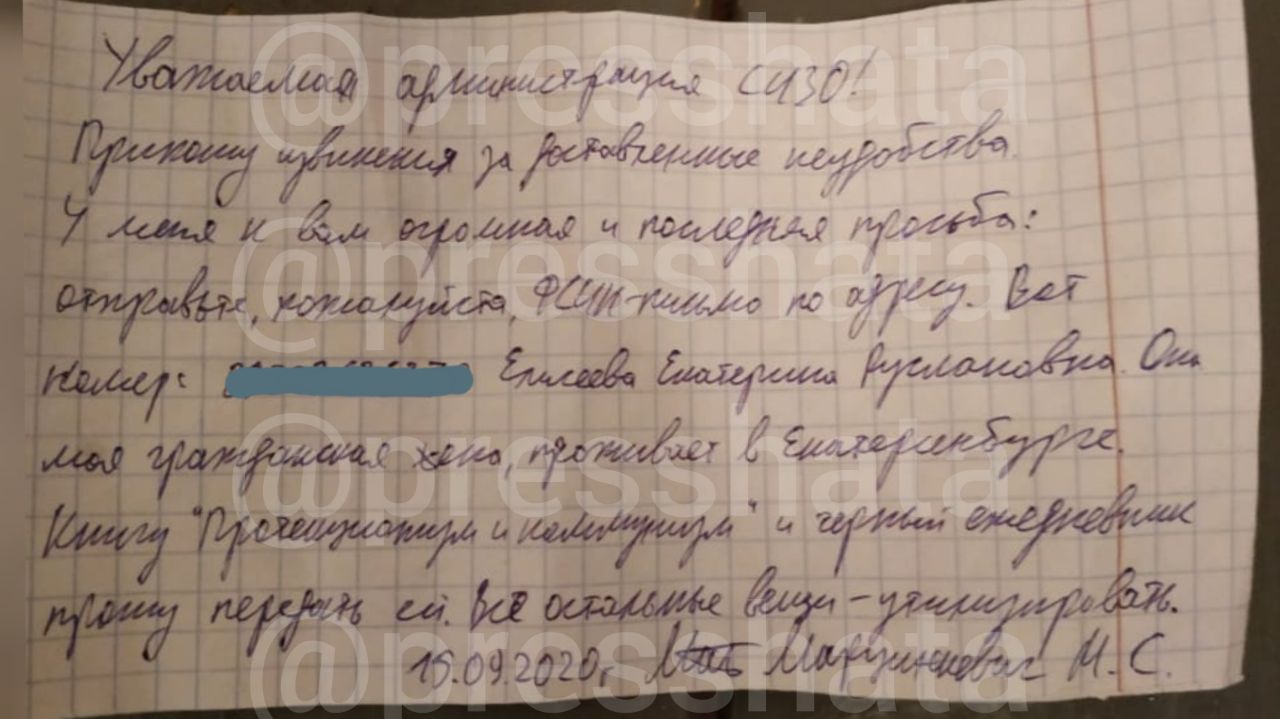 Уважаемая администрация СИЗО!
Приношу извинения за доставленные неудобства.
У меня к вам огромная и последняя просьба:
отправьте, пожалуйста, ФСИН-письмо по адресу. Вот
номер: Елисеева Екатерина Руслановна. Она
моя гражданская жена, проживает в Екатеринбурге.
Книгу "Протекционизм и коммунизм" и черный ежедневник
прошу передать ей. Всё остальные вещи - утилизировать.
15.09.2020г Марцинкевич М. С.
@presshata
@presshata
@presshata
@presshata